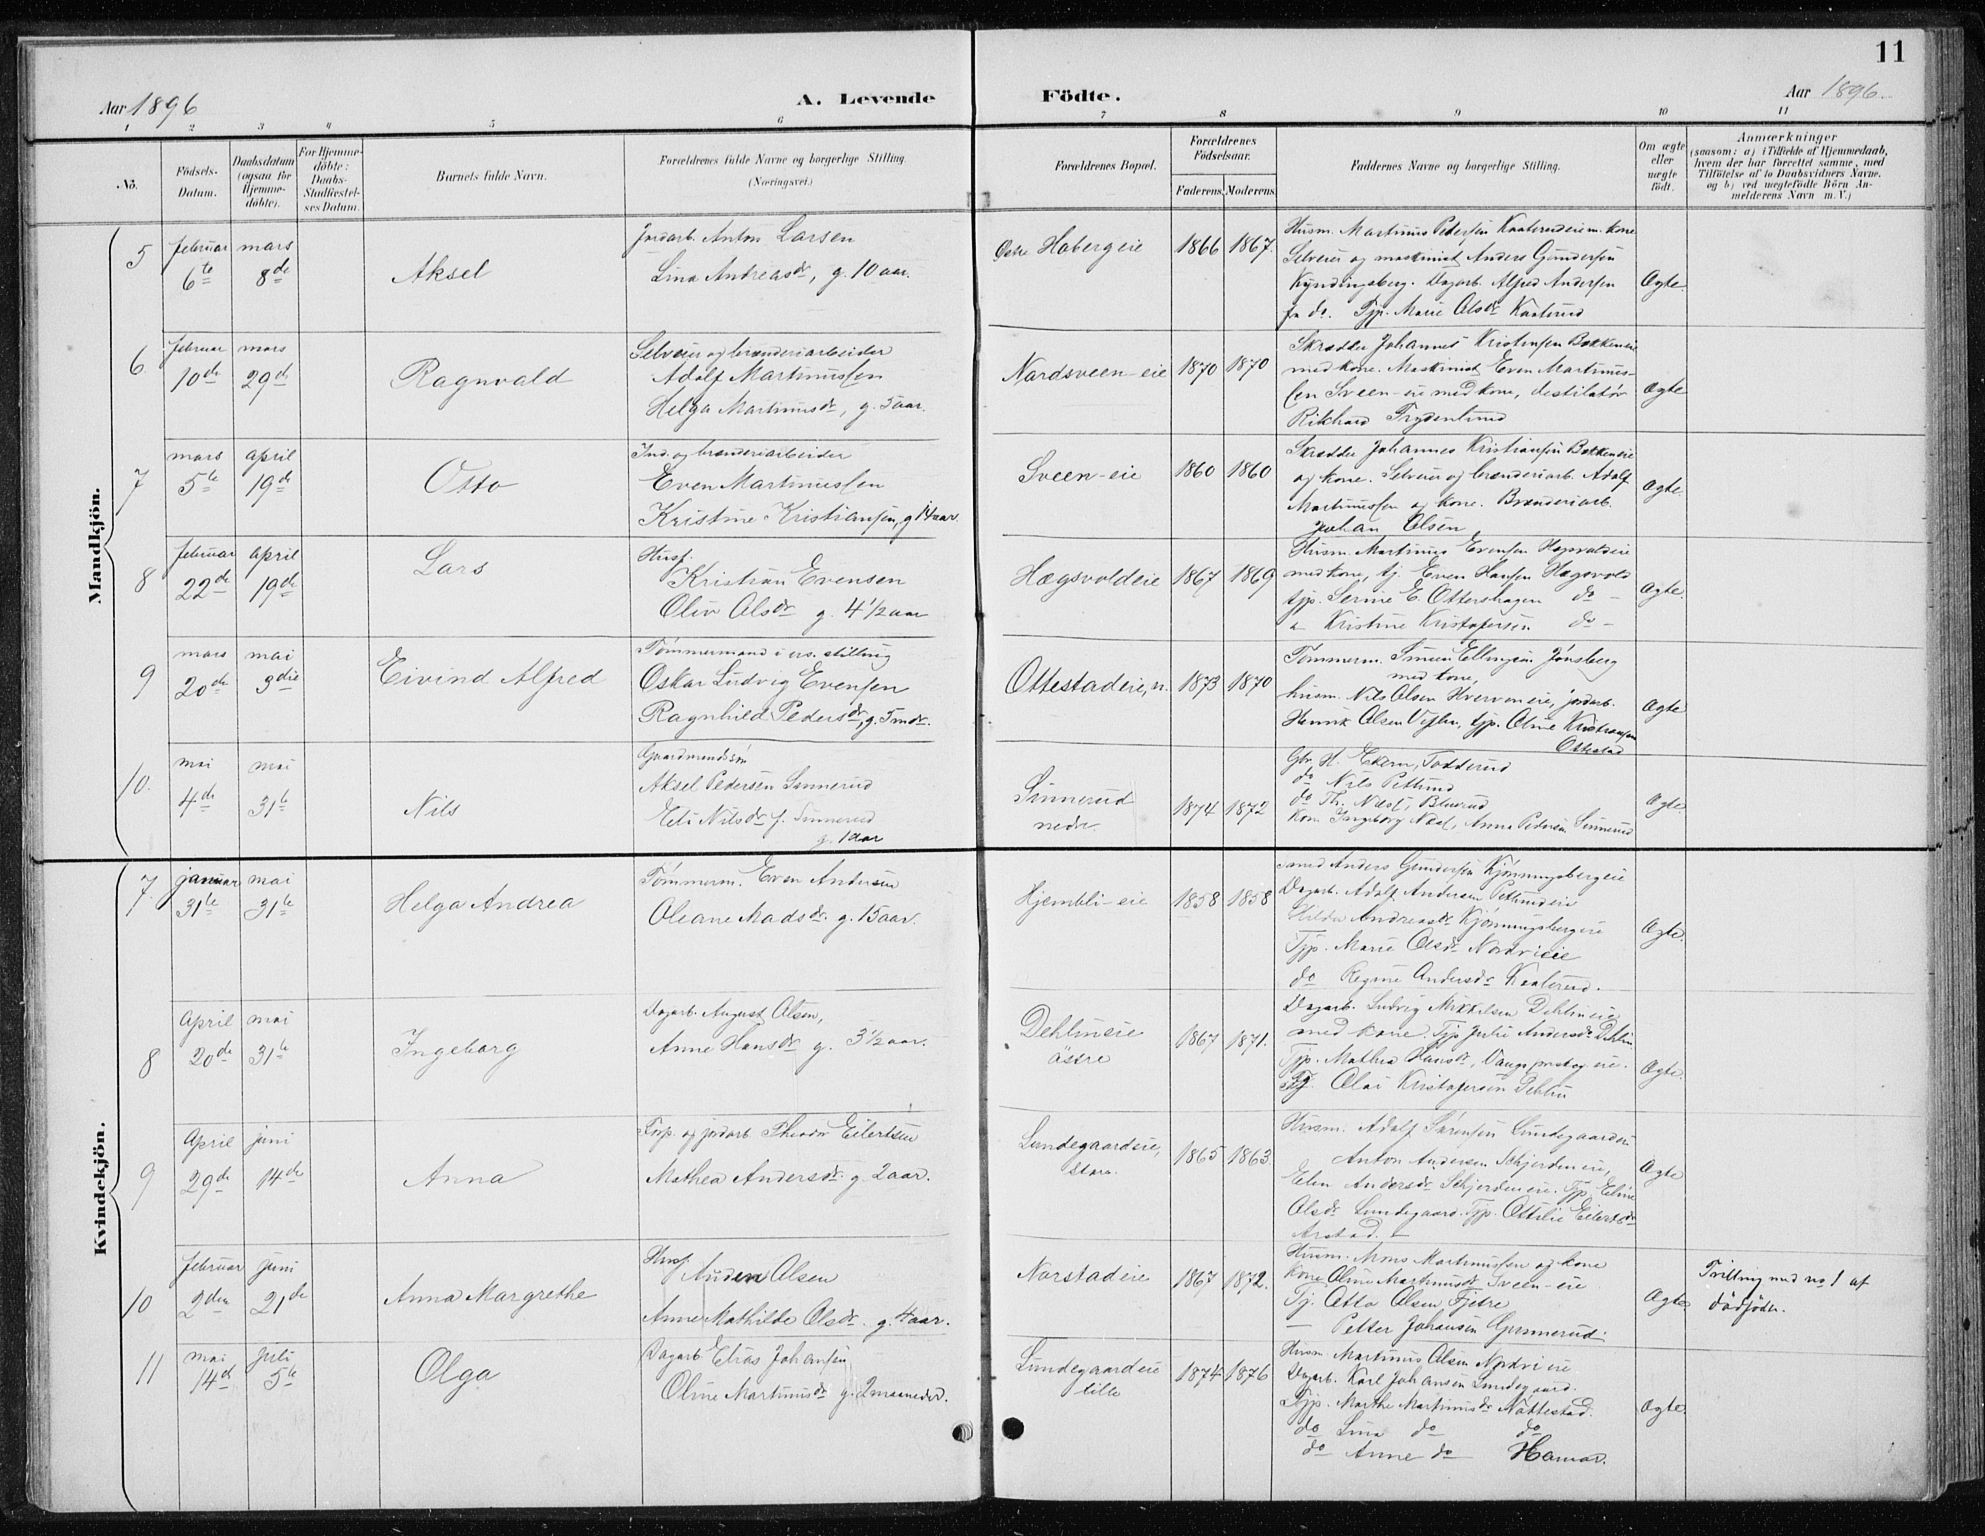 11
Aar 1896
A. Levende Födte.
Aar 1896.
1 2 3 4 5 6 7 8 9 10 11
No.
Födsels-Datum.
Daabsdatum (ogsaa for Hjemme-döbte).
For Hjemme-döbte: Daabs-Stadfæstel-ses Datum.
Barnets fulde Navn.
Forældrenes fulde Navne og borgerlige Stilling. (Næringsvei.)
Forældrenes Bopæl.
Forældrenes Födselsaar.
Faderens. Moderens.
Faddernes Navne og borgerlige Stilling.
Om ægte eller uægte födt.
Anmærkninger
(saasom: a) i Tilfælde af Hjemmedaab,
hvem der har forrettet samme, med
Tilföielse af to Daabsvidners Navne,
og b) ved uægtefödte Börn An-
melderens Navn m. V.)
Mandkjön.
5
februar 6te
mars 8de
Aksel
Jordarb. Anton Larsen
Lina Andreasdr, g. 10 aar.
Østre Hobergeie
1866 1867.
Husm. Martinus Pedersen Kaaterudeie m. kone
Selveier og maskinist Anders Gundersen
Kyndingsberg. Dagarb. Alfred Andersen
fra do. Pjp. Marie Olsdr Kaaterud
Ægte.
6
februar 10de
mars 29de
Ragnvald
Selveier og brænderiarbeider
Adolf Martinussen
Helga Martinusdr, g. 5 aar.
Nordsveen-eie
1870 1870
Skrædder Johannes Kristiansen Bakkeneie
med kone. Maskinist Even Martinus-
sen Sveen-eie med kone, destilatør
Rikhard Frydenlund
Ægte
7
mars 5te
april 19de
Otto
Ind. og brænderiarbeider
Even Martinussen
Kristine Kristiansen, g 14 aar.
Sveen-eie
1860 1860
Skrædder Johannes Kristiansen Bakkeneie
og kone. Selveier og brænderiarb. Adolf
Martinussen og kone. Brænderiarb.
Johan Olsen
Ægte.
8
februar 22de
april 19de
Lars
Husf.
Kristian Evensen
Oliv Olsdr g. 4 1/2 aar
Hægsvoldeie
1867 1869
Husm. Martinus Evensen Hægsvoldeie
med kone, tj. Even Hansen Hægsvold
tjp. Serine E. Ottershagen do -
" Kristine Kristofersen do -
Ægte.
9
mars 20de
mai 3die
Eivind Alfred
Tømmermand i us. stilling
Oskar Ludvig Evensen
Ragnhild Pedersdr, g. 5 mdr.
Ottestadeie, n.
1873 1870
Tømmerm. Simen Ellingsen Jønsberg
med kone,
husm. Nils Olsen Hvervoneie, jordarb.
Henrik Olsen, tjp. Oline Kristiansen
Ottestad
Ægte
10.
mai 4de
mai 31te
Nils
Gaardmandssøn
Aksel Pedersen Sinnerud
Eli Nilsdr f. Sinnerud
g. 1 aar
Sinnerud nedre.
1874 1872
Gbr. H. Ekern, Tødderud
do Nils Pettund
do Th. Næss, Bluerud
Kone Ingeborg Næss, Anna Pedersen Sinnerud
Ægte.
Kvindekjön.
7
januar 31te
mai 31te
Helga Andrea
Tømmerm. Even Andersen
Oleane Madsdr. g. 15 aar.
Hjembli-eie
1858 1858
smed Anders Gundersen Kjønningsbergeie
Dagarb. Adolf Andersen Pettundeie
Hilda Andreasdr Kjønningsbergeie
Tjp. Marie Olsdr Nordvieie
do Regine Andersdr Kaaterud.
Ægte.
8
April 20de
mai 31te
Ingeborg
Dagarb. August Olsen,
Anne Hansdr g. 3 1/2 aar.
Dehlineie østre
1867 1871.
Dagarb. Ludvig Mikkelsen Dehlineie,
med kone. Tjp Julie Andersdr Dehlin
Tjp. Mathea Hansdr, Vangs prestegeie.
Tj. Olai Kristofersen Dehlin
Ægte.
9
April 29de
juni 14de
Anna
Korp. og jordarb Theodor Eilertsen
Mathea Andersdr g. 2 aar.
Lundegaardeie, store.
1865 1863
Husm. Adolf Sørensen Lundegaarden
Anton Andersen Schjerdeneie,
Elen Andersdr Schjerdeneie. Tjp. Eline
Olsdr Lundegaard. Tjp. Ottilie Eilertsdr
Arstad.
Ægte
10
februar 2den
juni 21de
Anna Margrethe
Husf.
Auden Olsen
Anne Mathilde Olsdr. g. 4 aar.
Norstadeie
1867 1872.
Husm. Mons Martinussen og kone
kone Oline Martinusdr Sveen-eie
Tj. Otto Olsen Fjetre
— Petter Johansen Gunnerud.
Ægte
Tvilling med no 1 af
dødfødte.
11
mai 14de
juli 5te
Olga
Dagarb. Elias Johansen
Oline Martinusdr g. 2 maaneder.
Lundegaardeie lille
1874 1876
Husm. Martinus Olsen Nordvieie
Dagarb. Karl Johansen Lundegaard.
Tjp. Marthe Martinusdr Nøttestad.
do Lina do do
do Anne do Hamar.
Ægte.